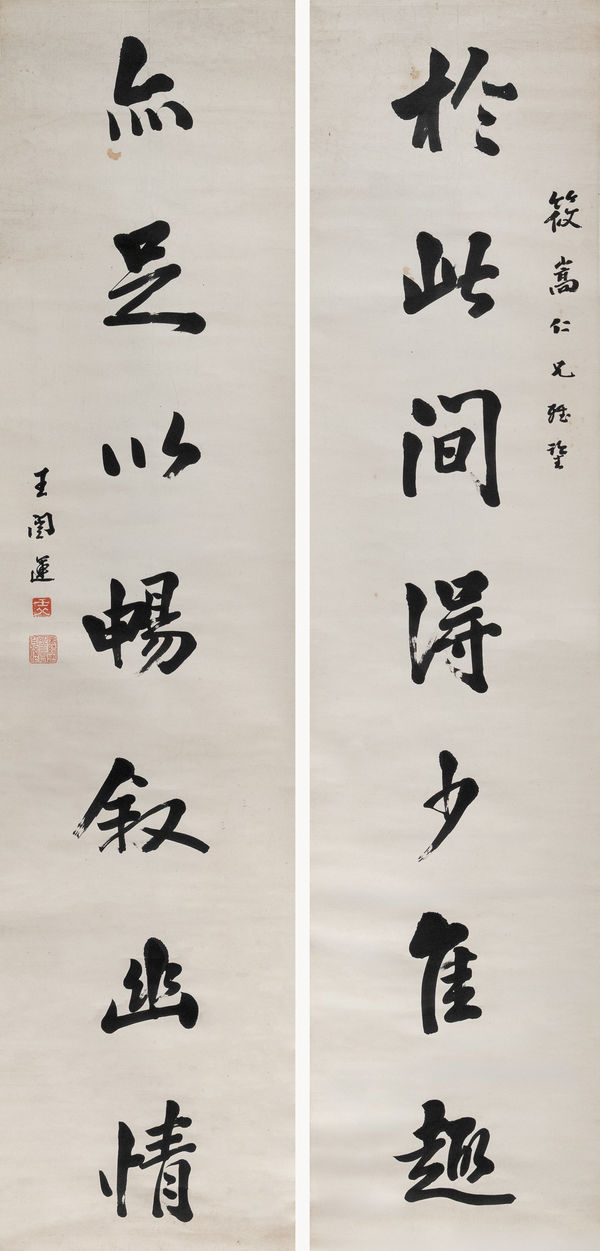 筱嵩仁兄雅鑒
於此間得少佳趣
亦足以暢叙幽情
王闓運